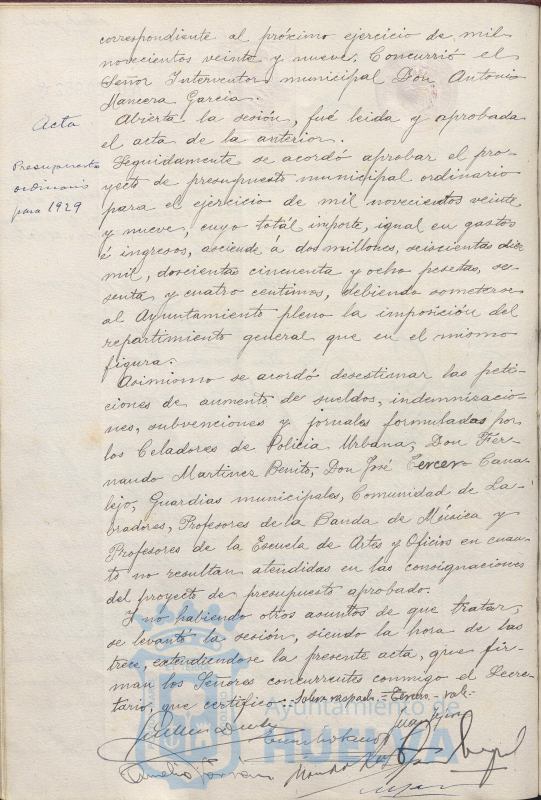 correspondiente al próximo ejercicio de mil
novecientos veinte y nueve. Concurrió el
Señor Interventor municipal Don Antonio
Mancera Garcia.
Acta
Abierta la sesión, fué leida y aprobada
el acta de la anterior.
Presupuesto
ordinario
para 1929
Seguidamente se acordó aprobar el pro-
yecto de presupuesto municipal ordinario
para el ejercicio de mil novecientos veinte
y nueve, cuyo totál importe, igual en gastos
é ingresos, asciende á dos millones, seiscientas diez
mil, doscientas cincuenta y ocho pesetas, se-
senta y cuatro centimos, debiendo someterse
al Ayuntamiento pleno la imposición del
repartimiento general que en el mismo
figura.
Asimismo se acordó desestimar las peti-
ciones de aumento de sueldos, indemnizacio-
nes, subvenciones y jornales formuladas por
los Celadores de Policia Urbana, Don Fer-
nando Martinez Benito, Don José Tercero Cana-
lejo, Guardias municipales, Comunidad de La-
bradores, Profesores de la Banda de Música y
Profesores de la Escuela de Artes y Oficios en cuan-
to no resultan atendidas en las consignaciones
del proyecto de presupuesto aprobado.
Y no habiendo otros asuntos de que tratar,
se levantó la sesión, siendo la hora de las
trece, extendiendose la presente acta, que fir-
man los Señores concurrentes conmigo el Secre-
tario, que certifico.- Sobre raspado = Tercero - vale-
Ayuntamiento de
HUELVA